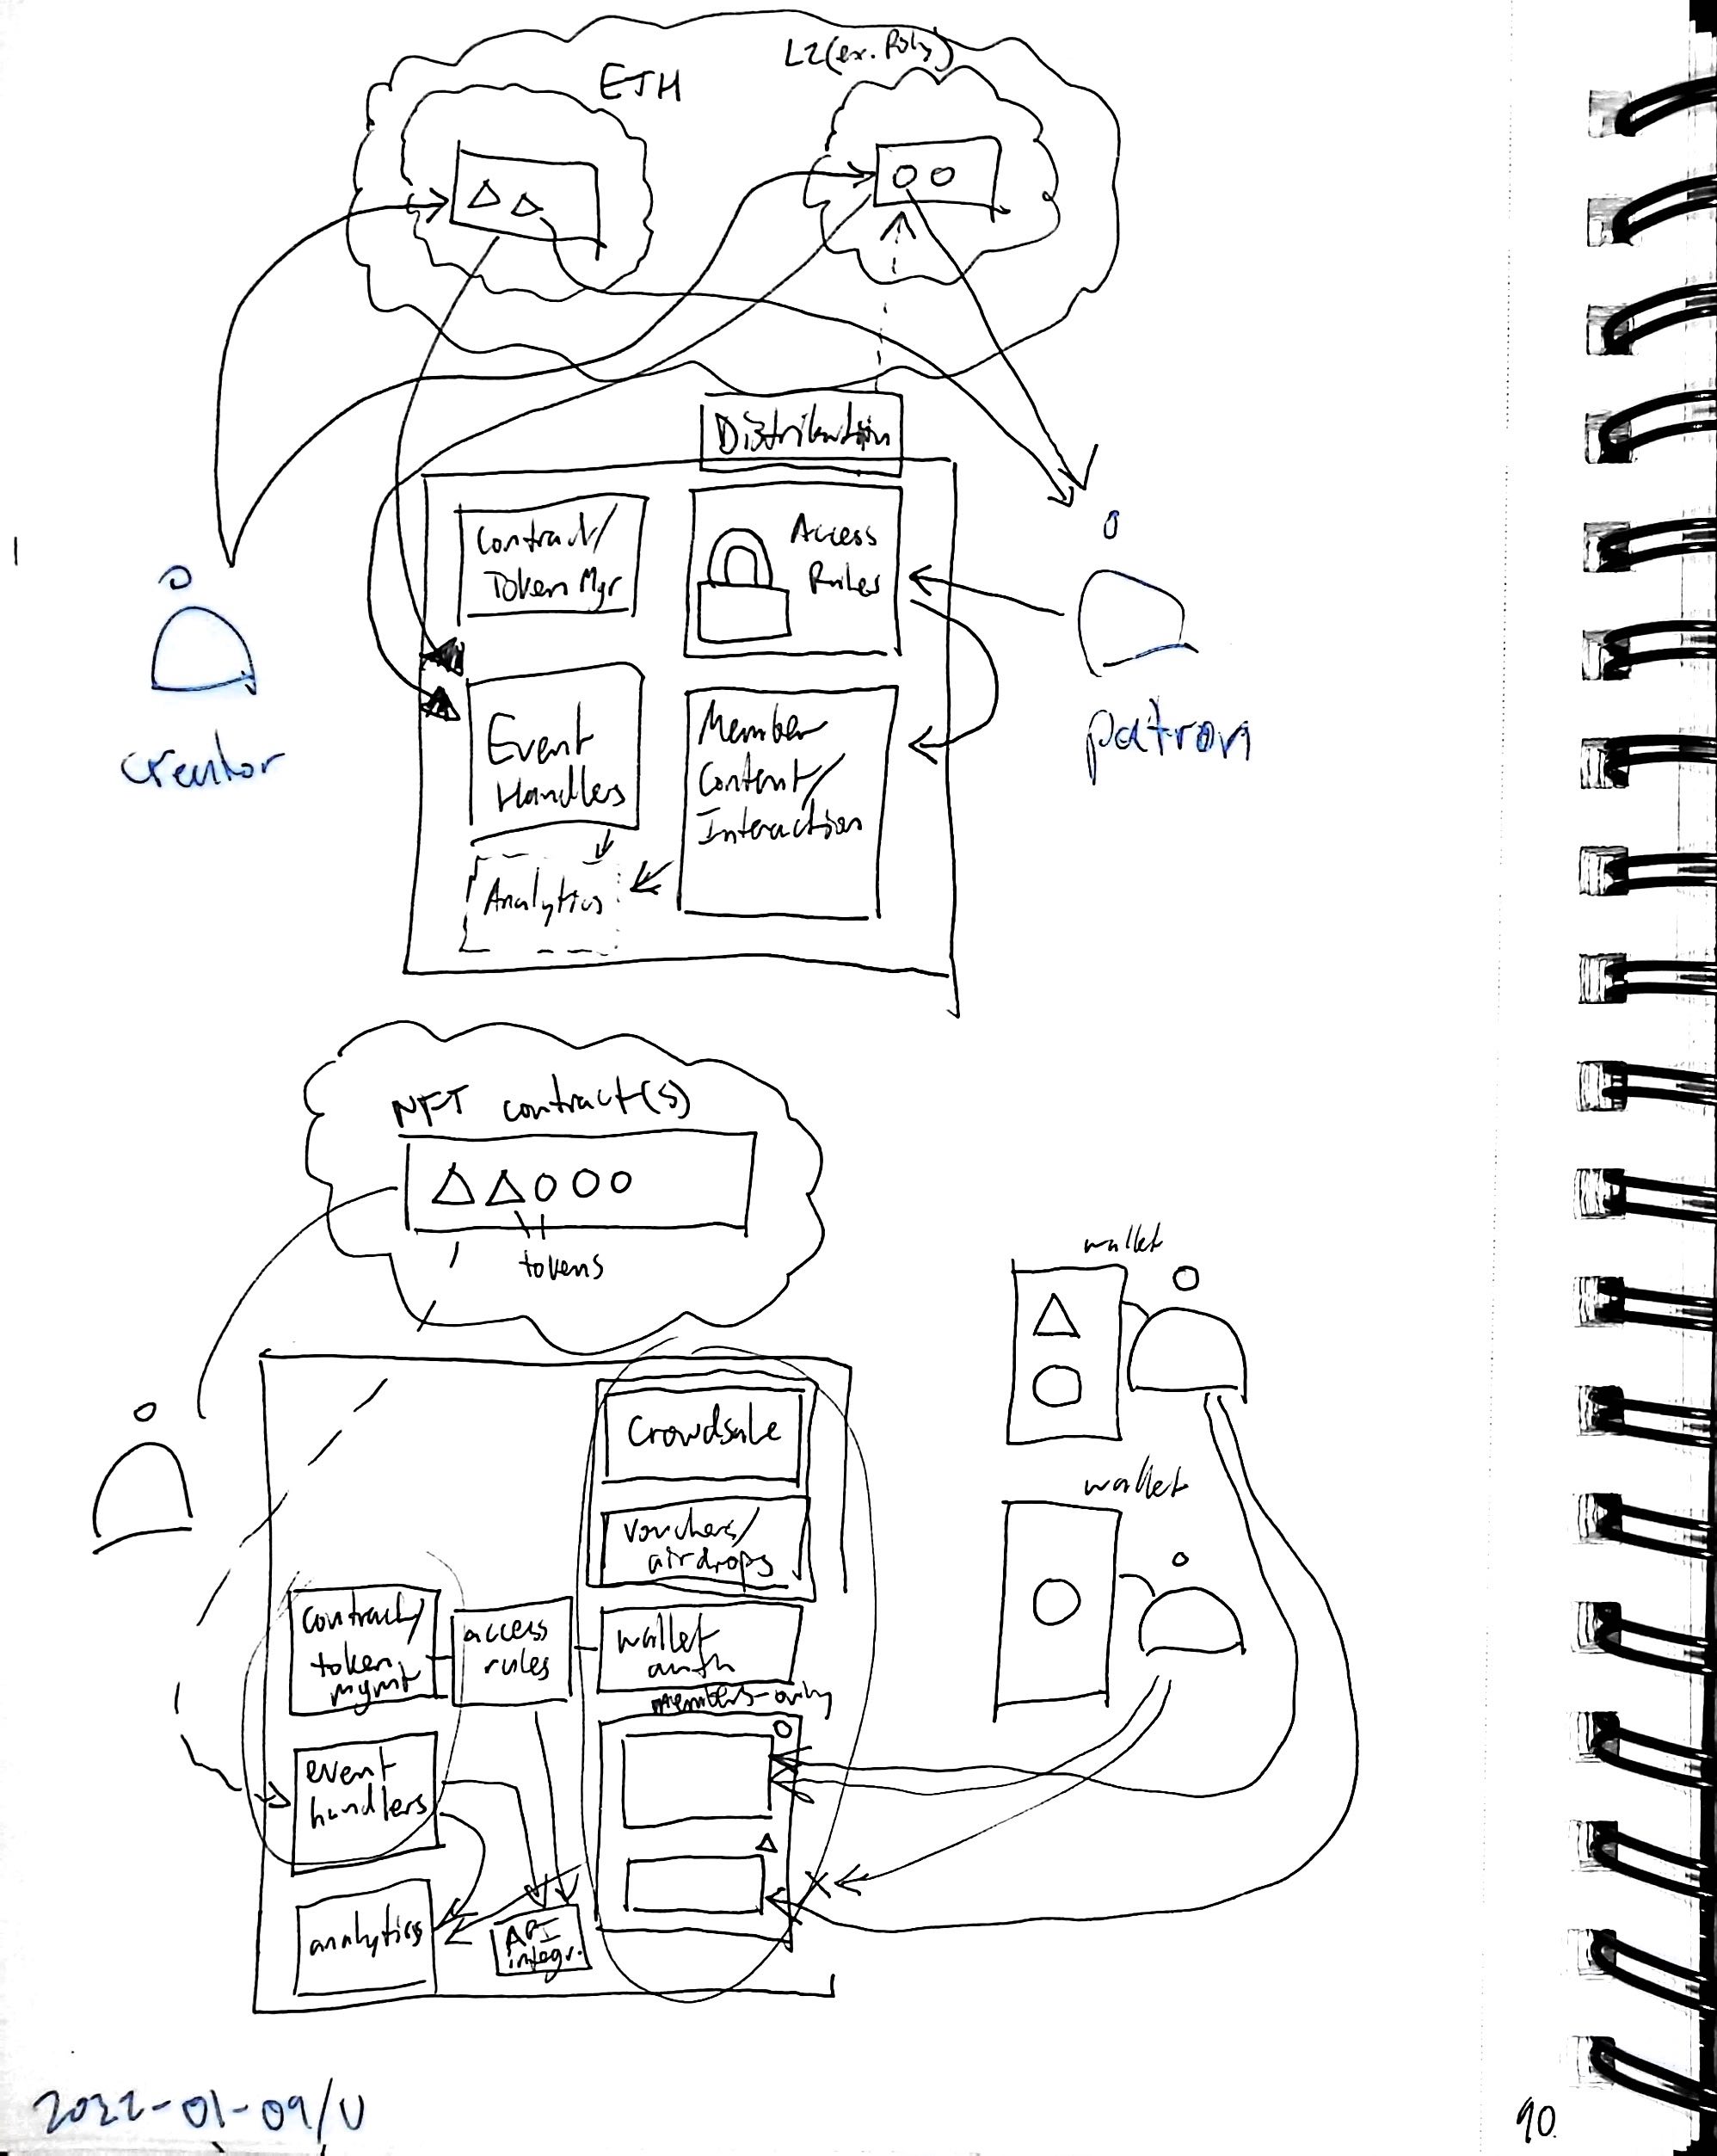 ETH
L2(ex. Poly)
Distribution
Contract/
Token Mgr
Access
Rules
creator
Event
Handlers
Member
Content/
Interaction
patron
Analytics
NFT contract(s)
tokens
wallet
Crowdsale
wallet
vouchers/
airdrops
contract/
token
mgmt
access
rules
wallet
auth
members-only
event
handlers
analytics
API
integr.
2022-01-09/U
90